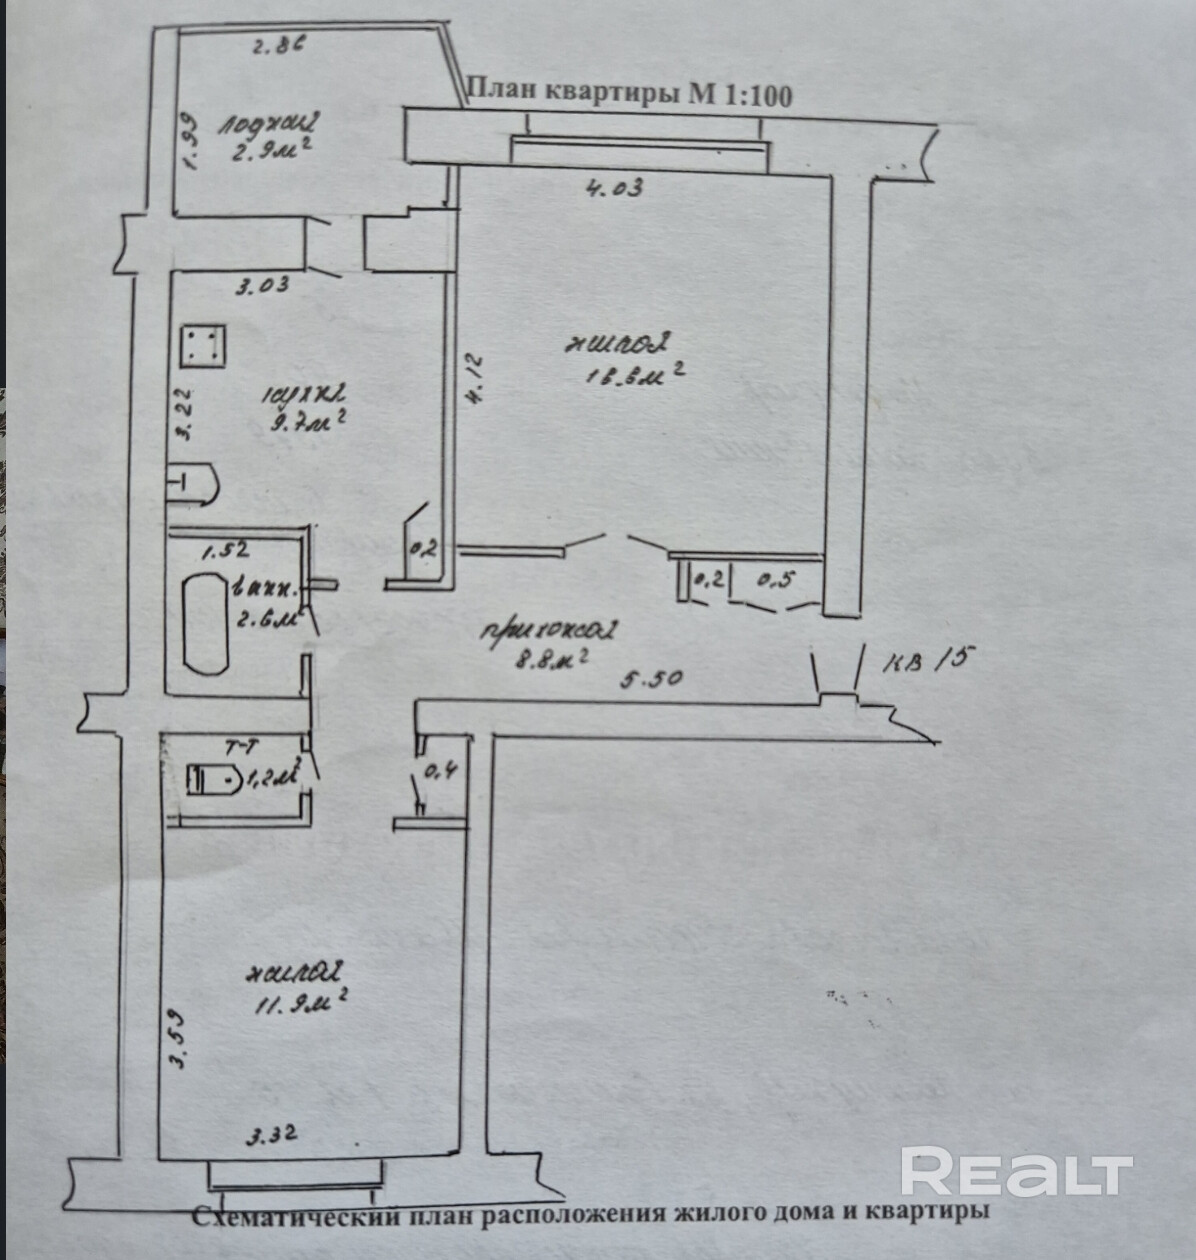 2.86
План квартиры М 1:100
лоджия
2.9м²
1.99
4.03
3.03
жилая
16.6м²
4.12
кухня
9.7м²
3.22
0,2
1.52
ванн.
2.6м²
0,2
0,5
прихожая
8.8м²
5.50
кв 15
т-т
1,2м²
0,4
жилая
11.9м²
3.59
3.32
REALT
Схематический план расположения жилого дома и квартиры